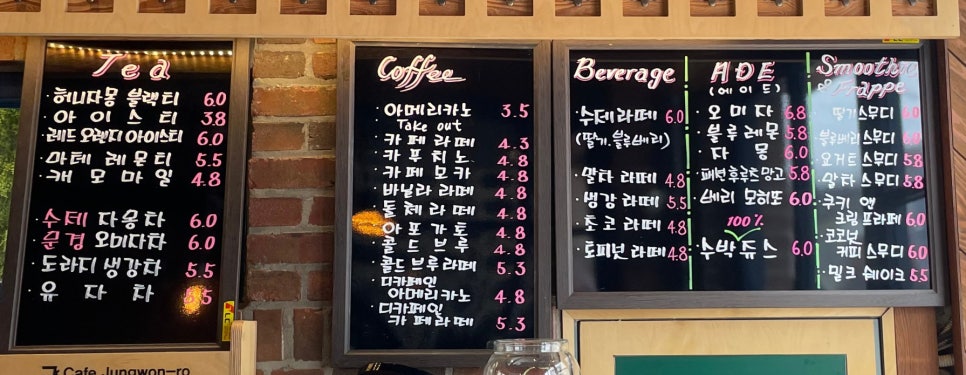 Tea
· 허니자몽 블랙티 6.0
· 아이스티 3.8
· 레드 오렌지 아이스티 6.0
· 마테 레몬티 5.5
· 캐모마일 4.8
· 수제 자몽차 6.0
· 문경 오미자차 6.0
· 도라지 생강차 5.5
· 유자차 5.5
Cafe Jungwon-ro
Coffee
· 아메리카노 3.5
Take out
· 카페라떼 4.3
· 카푸치노 4.8
· 카페모카 4.8
· 바닐라 라떼 4.8
· 돌체라떼 4.8
· 아포가토 4.8
· 콜드브루 4.8
· 콜드브루라떼 5.3
· 디카페인
아메리카노 4.8
· 디카페인
카페라떼 5.3
Beverage
· 수제라떼 6.0
(딸기, 블루베리)
· 말차 라떼 4.8
· 생강 라떼 5.5
· 초코 라떼 4.8
· 토피넛 라떼 4.8
ADE
(에이드)
· 오미자 6.8
· 블루레몬 5.8
· 자몽 6.0
· 패션후루츠망고 5.8
· 베리 모히또 6.0
100%
· 수박쥬스 6.0
Smoothie
& Frappe
· 딸기스무디 6.0
· 블루베리스무디 6.0
· 요거트 스무디 5.8
· 말차 스무디 5.8
· 쿠키 앤
크림프라페 6.0
· 코코넛
커피스무디 6.0
· 밀크 쉐이크 5.5